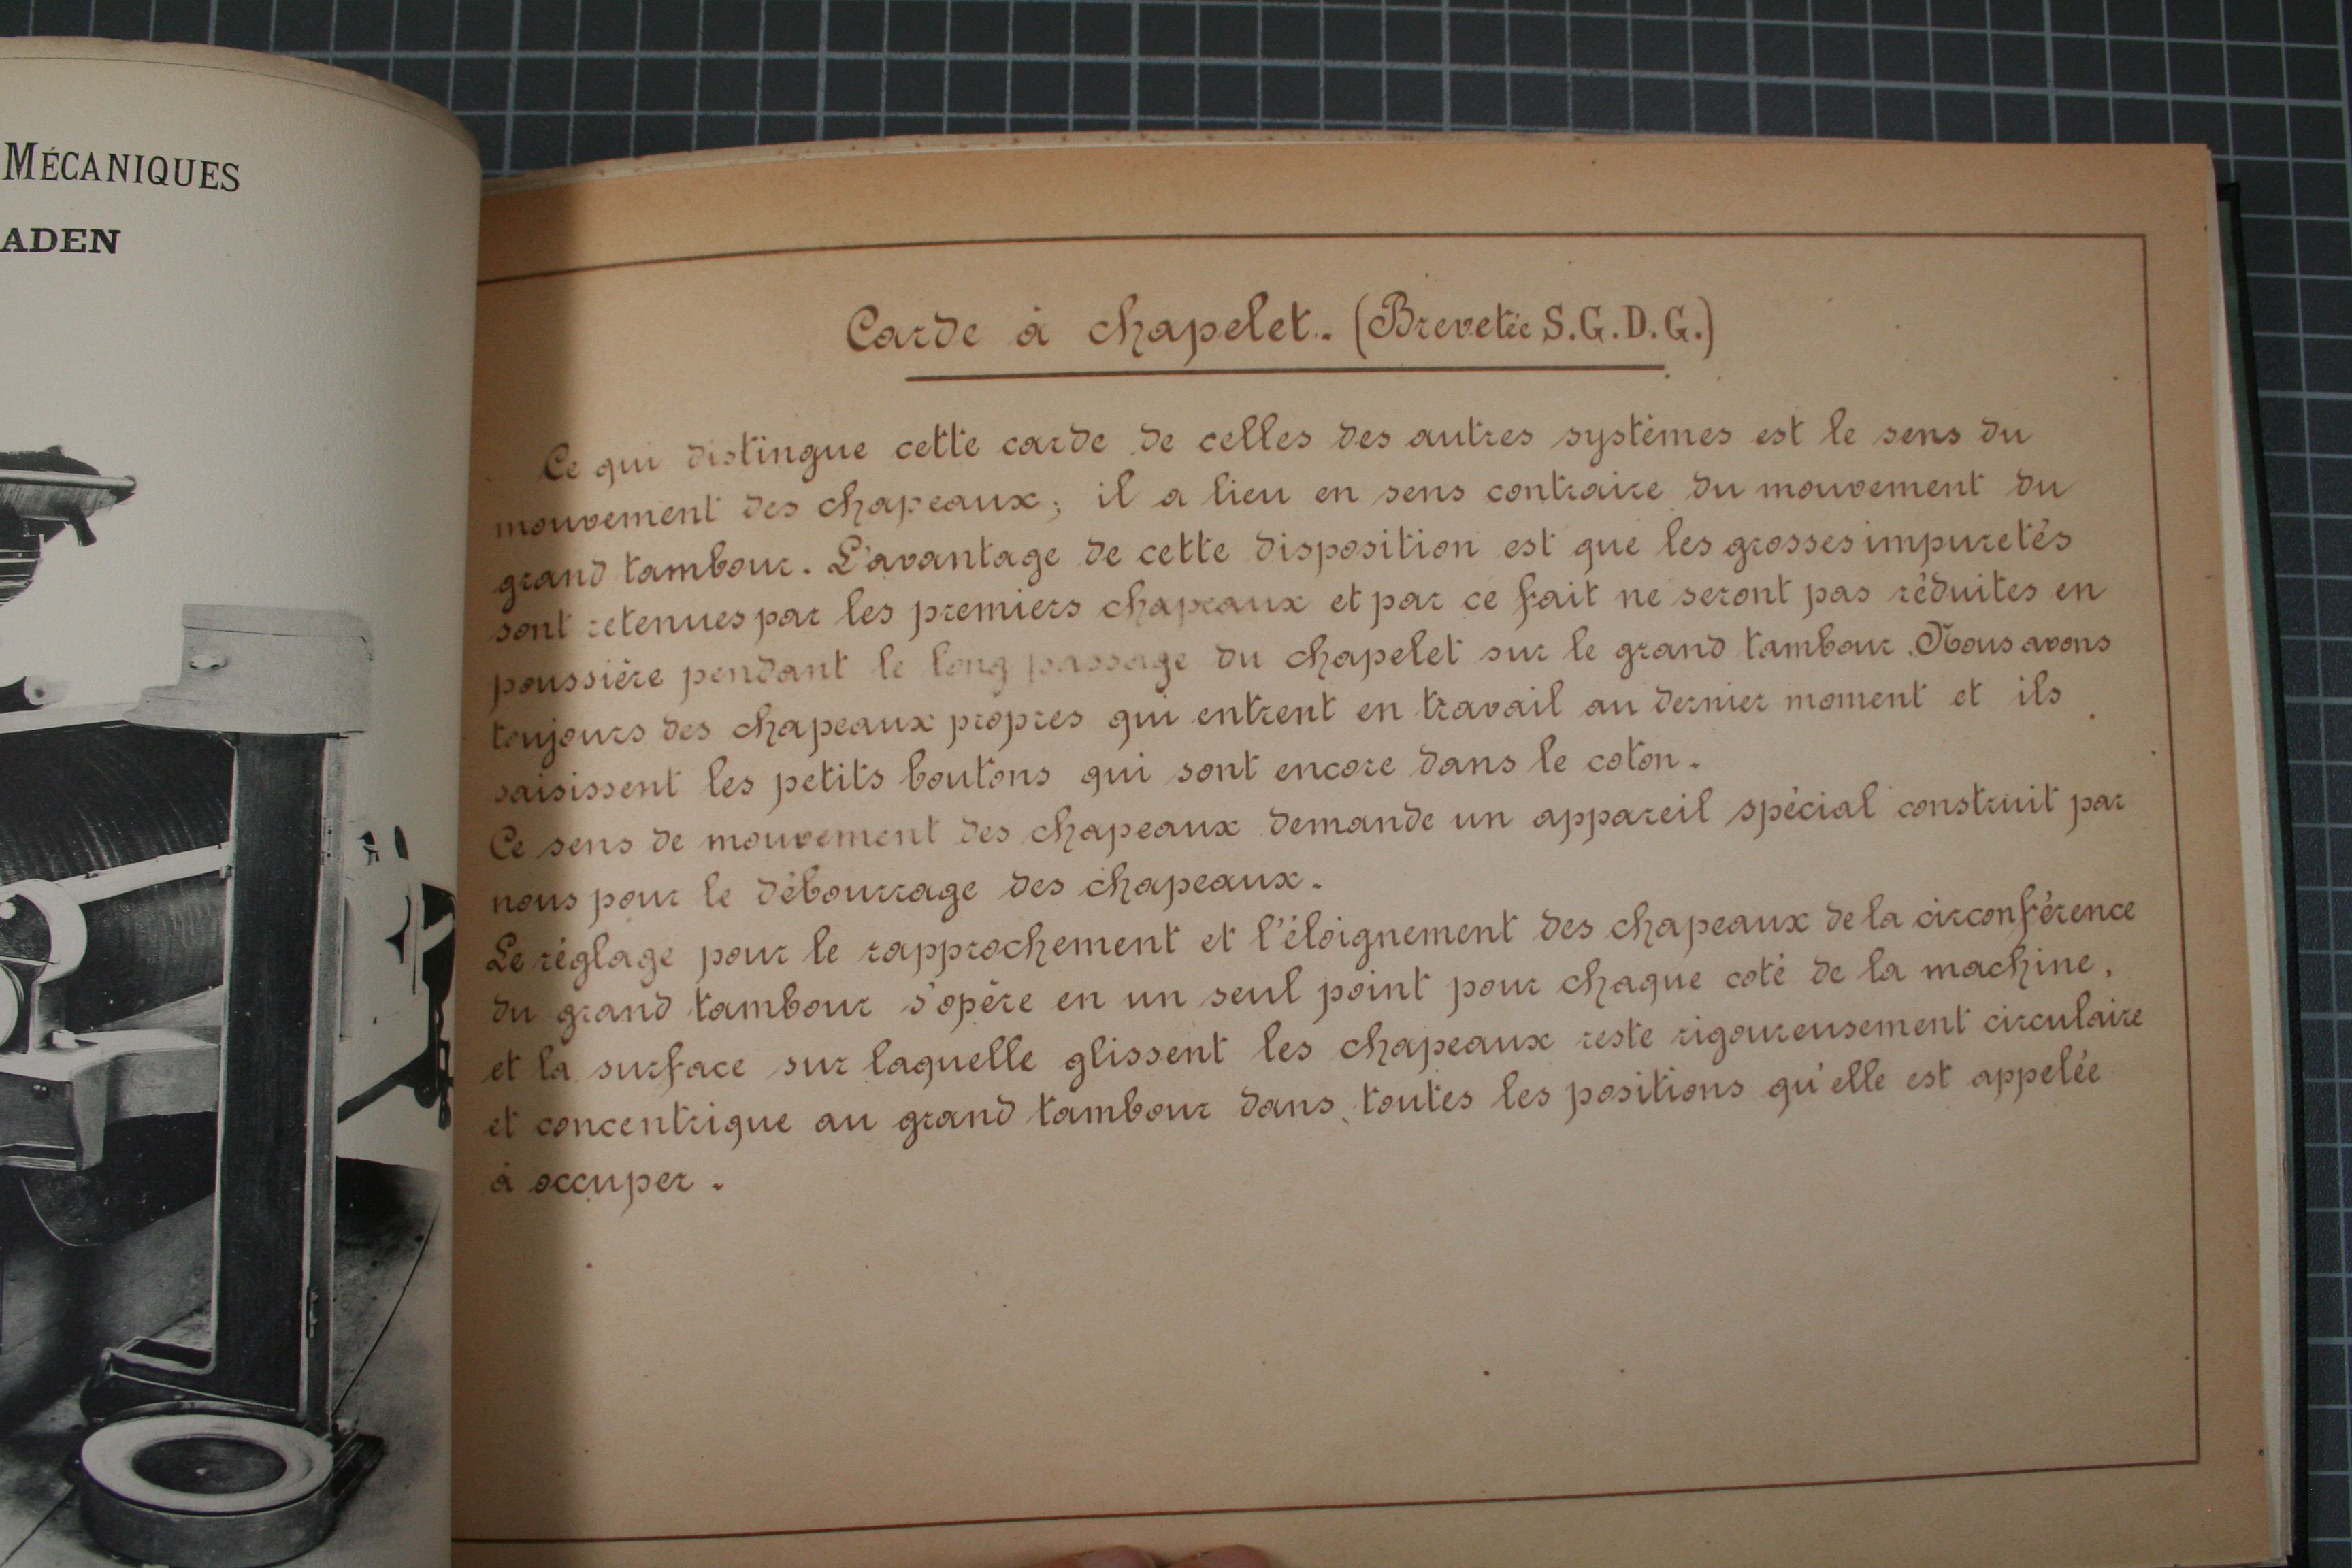 MÉCANIQUES
ADEN
Carde à chapelet. (Brevetée S.G.D.G.)
Ce qui distingue cette carde de celles des autres systèmes est le sens du
mouvement des chapeaux; il a lieu en sens contraire du mouvement du
grand tambour. L'avantage de cette disposition est que les grosses impuretés
sont retenues par les premiers chapeaux et par ce fait ne seront pas réduites en
poussière pendant le long passage du chapelet sur le grand tambour. Nous avons
toujours des chapeaux propres qui entrent en travail au dernier moment et ils
saisissent les petits boutons qui sont encore dans le coton.
Ce sens de mouvement des chapeaux demande un appareil spécial construit par
nous pour le débourrage des chapeaux.
Le réglage pour le rapprochement et l'éloignement des chapeaux de la circonférence
du grand tambour s'opère en un seul point pour chaque coté de la machine,
et la surface sur laquelle glissent les chapeaux reste rigoureusement circulaire
et concentrique au grand tambour dans toutes les positions qu'elle est appelée
à occuper.